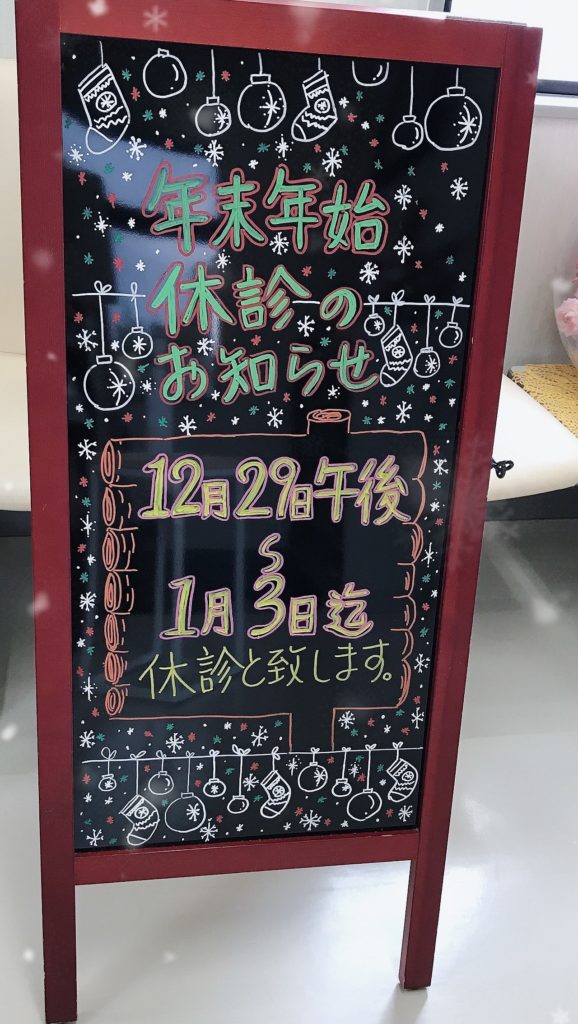 年末年始
休診の
お知らせ
12月29日午後
〜
1月3日迄
休診と致します。